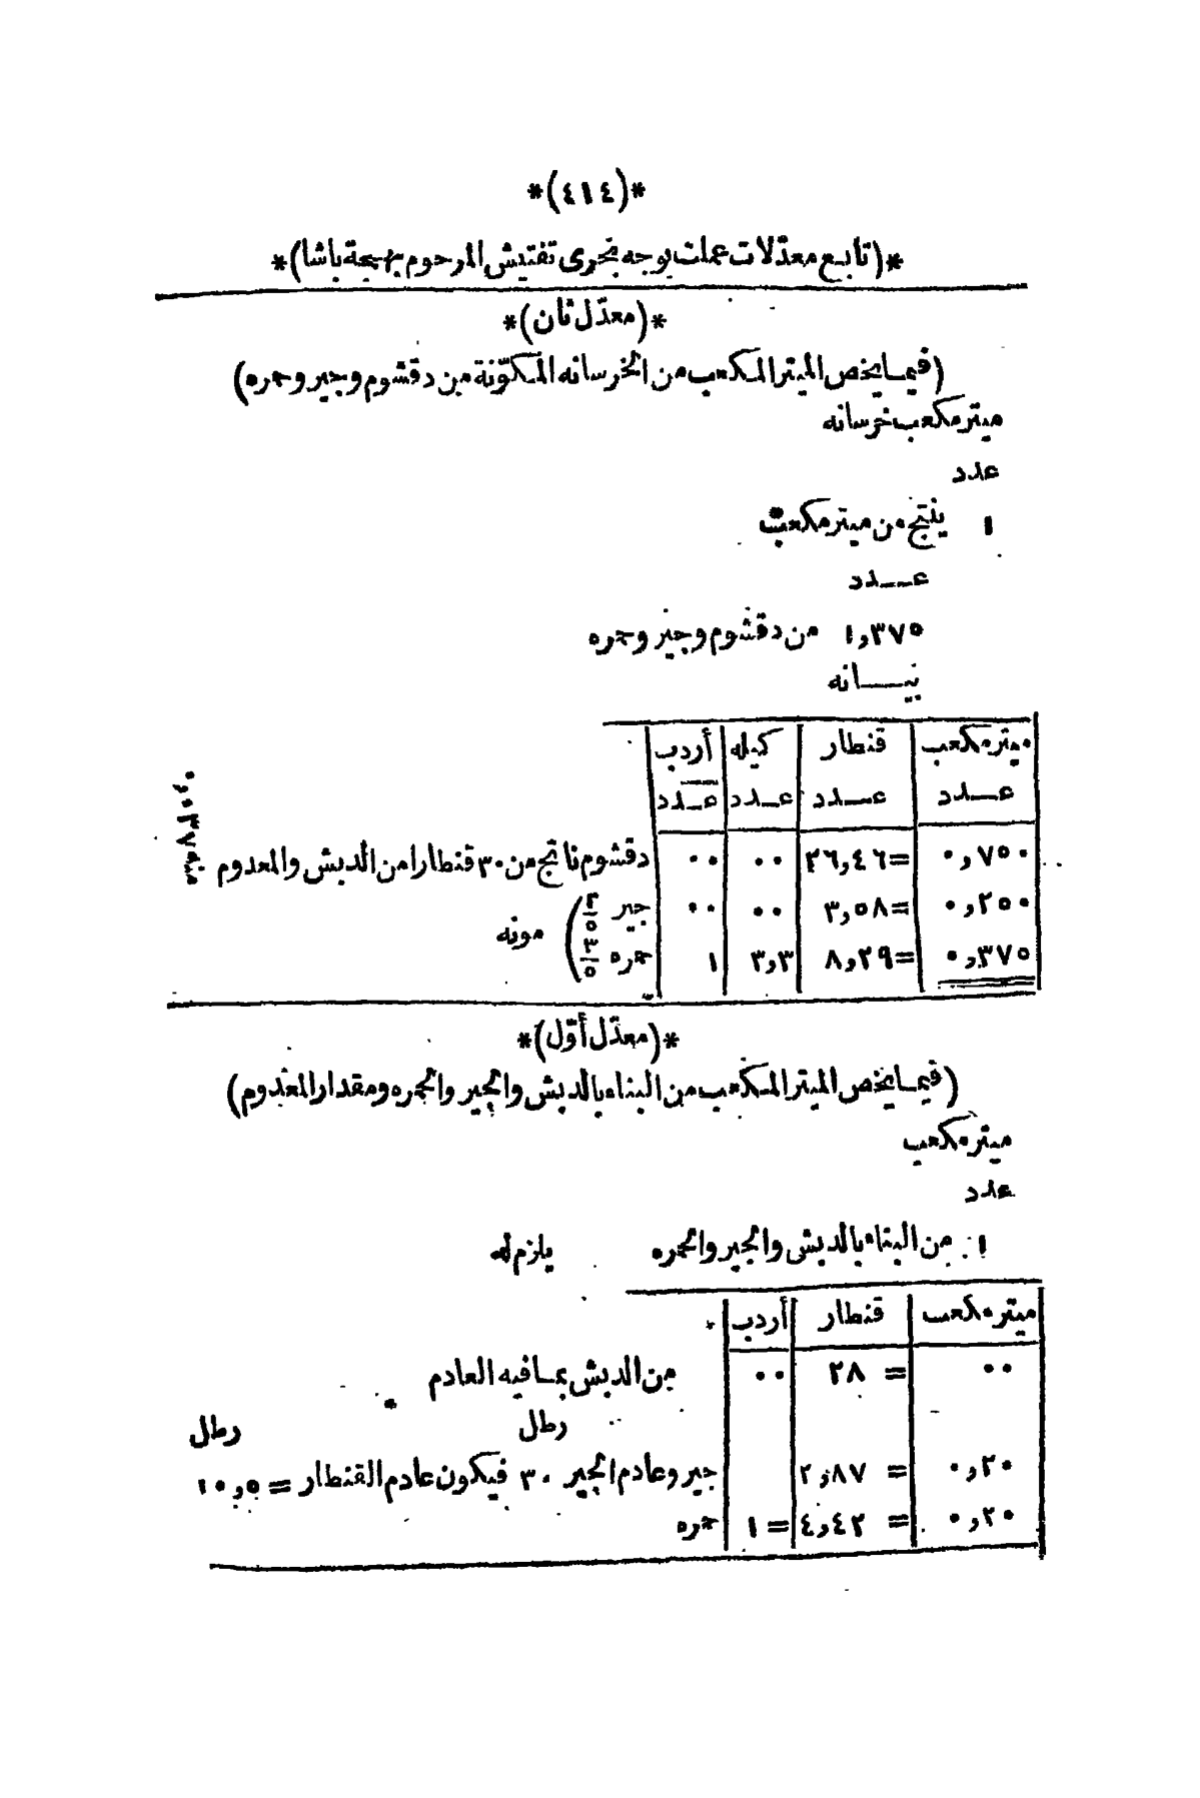 *(٤١٤)*
*(تابع معدّلات عملت بوجه بحرى تفتيش المرحوم بهجة باشا)*
*(معدّل ثان)*
(فيما يخص الميتر المكعب من الخرسانه المكوّنة من دقشوم وجير وحمره)
ميتر مكعب خرسانه
عدد
١ ينتج من ميتر مكعب
عــدد
١,٣٧٥ من دقشوم وجير وحمره
بيــانه
ميتر مكعب قنطار كيله أردب
عــدد عــدد عــدد عــدد
٠,٧٥٠ =٢٦,٤٦ ٠٠ ٠٠ دقشوم ناتج من ٣٠ قنطارا من الدبش والمعدوم
منه ٠,٠٣٧
٠,٢٥٠ =٣,٥٨ ٠٠ ٠٠ جير
٠,٣٧٥ =٨,٢٩ ٣,٣ ١ حمره ٣/٥) مونه
*(معدّل أوّل)*
(فيما يخص الميتر المكعب من البناء بالدبش والجير والحمره ومقدار المعدوم)
ميتر مكعب
عدد
١ من البناء بالدبش والجير والحمره يلزم له
ميتر مكعب قنطار أردب
٠٠ = ٢٨ ٠٠ من الدبش بما فيه العادم
رطل رطل
٠,٢٠ = ٢,٨٧ جير وعادم الجير ٣٠ فيكون عادم القنطار = ١٠,٥
٠,٢٠ = ٤,٤٢ = ١ حمره